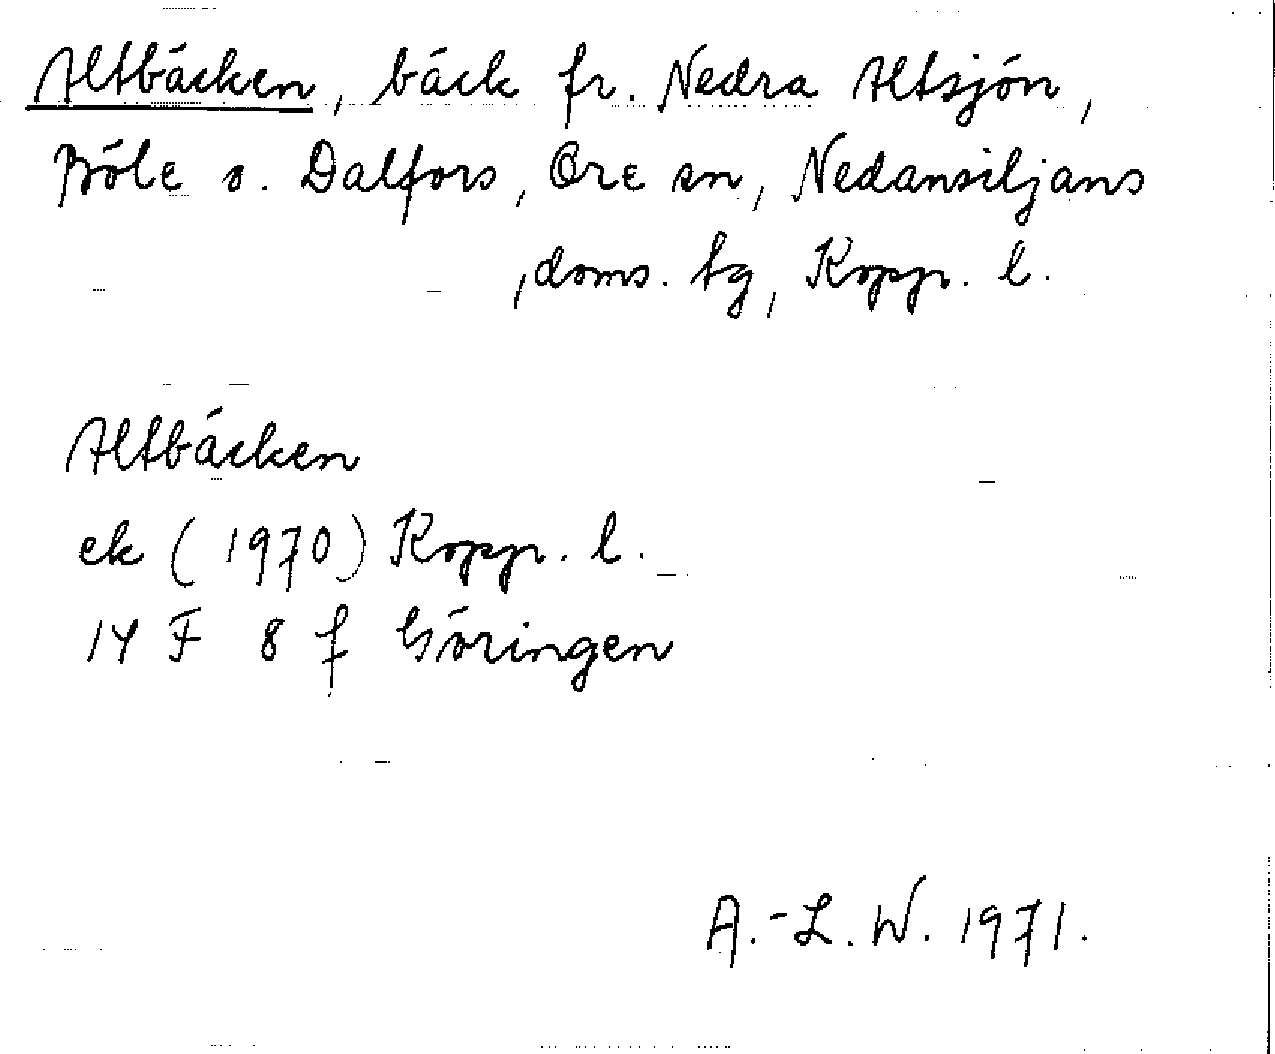 Altbäcken, bäck fr. Nedra Altsjön,
Böle o. Dalfors, Ore sn, Nedansiljans
doms. tg, Kopp. l.
Altbäcken
ek (1970) Kopp. l.
14 F 8 f Göringen
A.-L. W. 1971.